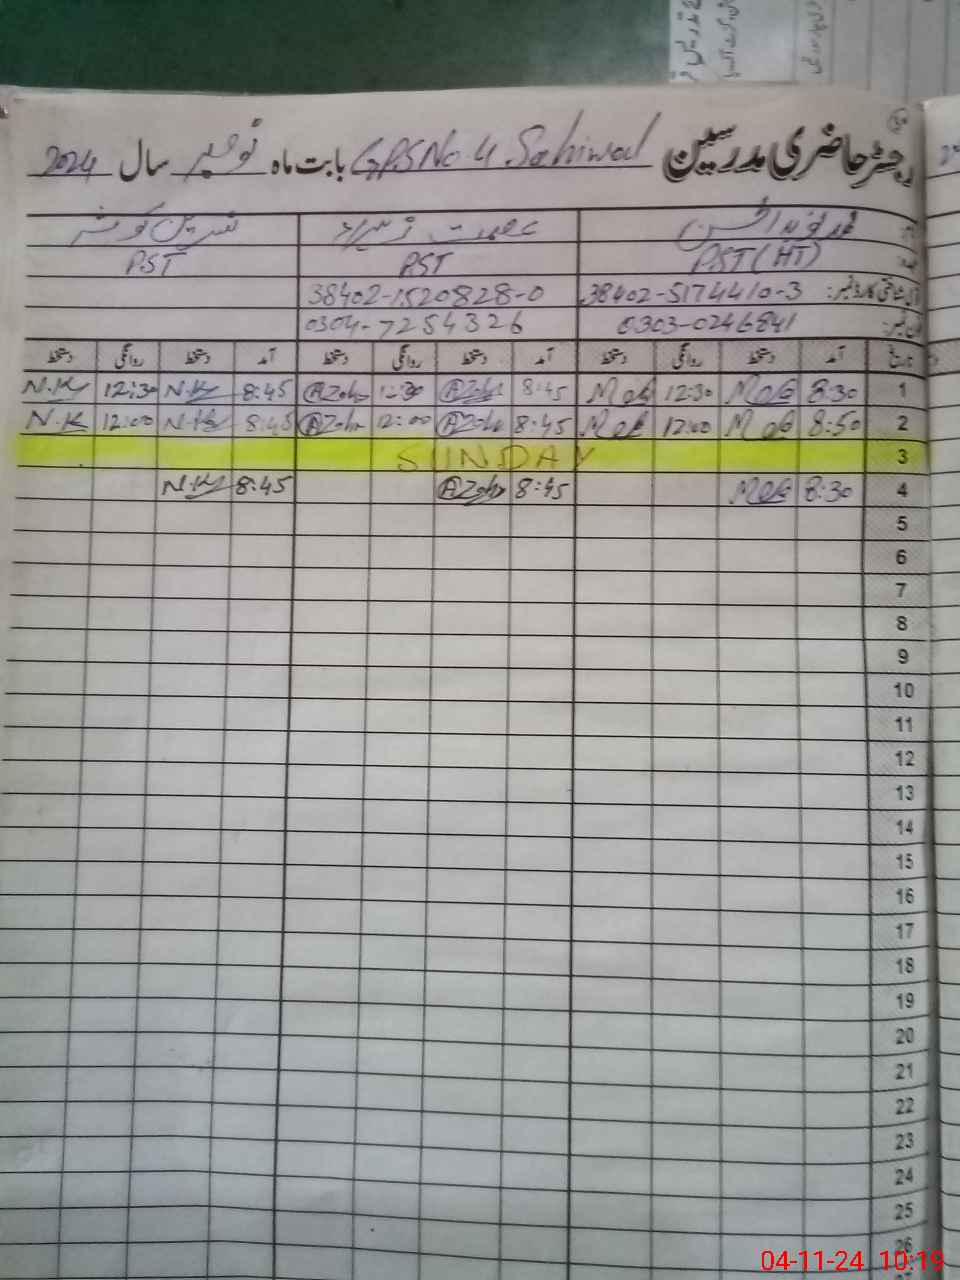 رجسٹر حاضری مدرسین GPS No. 4 Sahiwal بابت ماہ نومبر سال 2024
عصمت زہراء نسرین کوثر
PST (HT) PST PST
38402-5174410-3 38402-1520828-0
0303-0246841 0304-7254326
تاریخ آمد دستخط روانگی دستخط آمد دستخط روانگی دستخط آمد دستخط روانگی دستخط
1 8:30 12:30 8:45 AZohr 12:30 AZohr 8:45 N.K 12:30 N.K
2 8:50 12:00 8:45 AZohr 12:00 AZohr 8:45 N.K 12:00 N.K
3 SUNDAY
4 8:30 8:45 AZohr 8:45 N.K
5
6
7
8
9
10
11
12
13
14
15
16
17
18
19
20
21
22
23
24
25
26
04-11-24 10:19